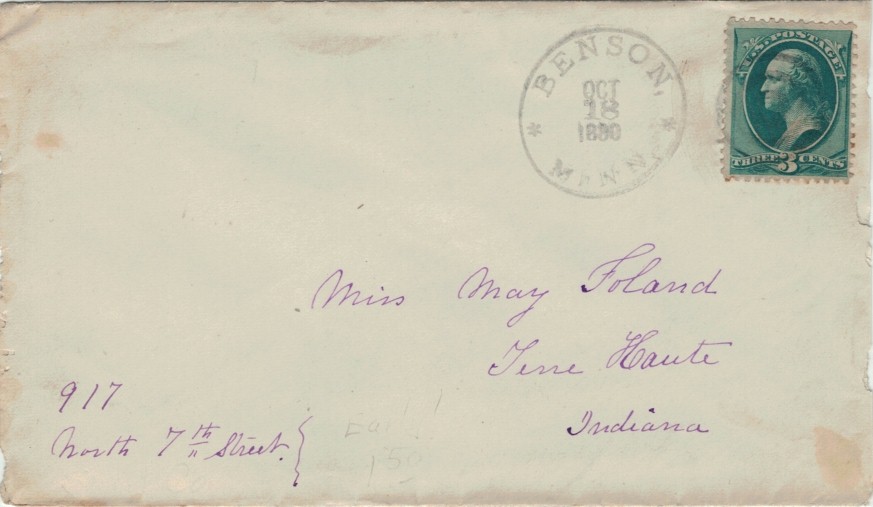 BENSON,
OCT
18
1880
MINN.
U.S. POSTAGE
THREE 3 CENTS
Miss May Foland
Terre Haute
Indiana
917
North 7th Street.